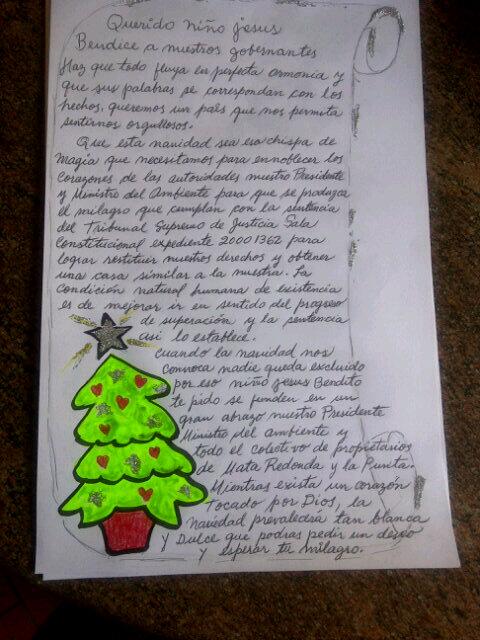 Querido niño jesus
Bendice a nuestros gobernantes
Haz que todo fluya en perfecta armonia y
que sus palabras se correspondan con los
hechos, queremos un país que nos permita
sentirnos orgullosos.
Que esta navidad sea esa chispa de
magia que necesitamos para ennoblecer los
corazones de las autoridades nuestro Presidente
y Ministro del Ambiente para que se produzca
el milagro que cumplan con la sentencia
del Tribunal Supremo de Justicia Sala
Constitucional expediente 20001362 para
lograr restituir nuestros derechos y obtener
una casa similar a la nuestra. La
condición natural humana de existencia
es de mejorar ir en sentido del progreso
de superación y la sentencia
asi lo establece.
Cuando la navidad nos
convoca nadie queda excluido
por eso niño jesus Bendito
te pido se funden en un
gran abrazo nuestro Presidente
Ministro del ambiente y
todo el colectivo de propietarios
de Mata Redonda y la Punta.
Mientras exista un corazón
Tocado por Dios, la
navidad prevalecería tan blanca
y Dulce que podras pedir un deseo
y esperar tu milagro.